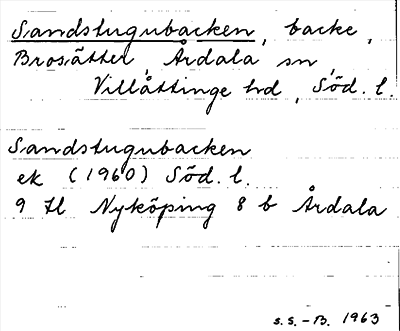 Sandstugubacken, backe,
Brosätter, Årdala sn,
Villåttinge hd, Söd. l.
Sandstugubacken
ek (1960) Söd. l.
9 H Nyköping 8 b Årdala
S.S.-B. 1963